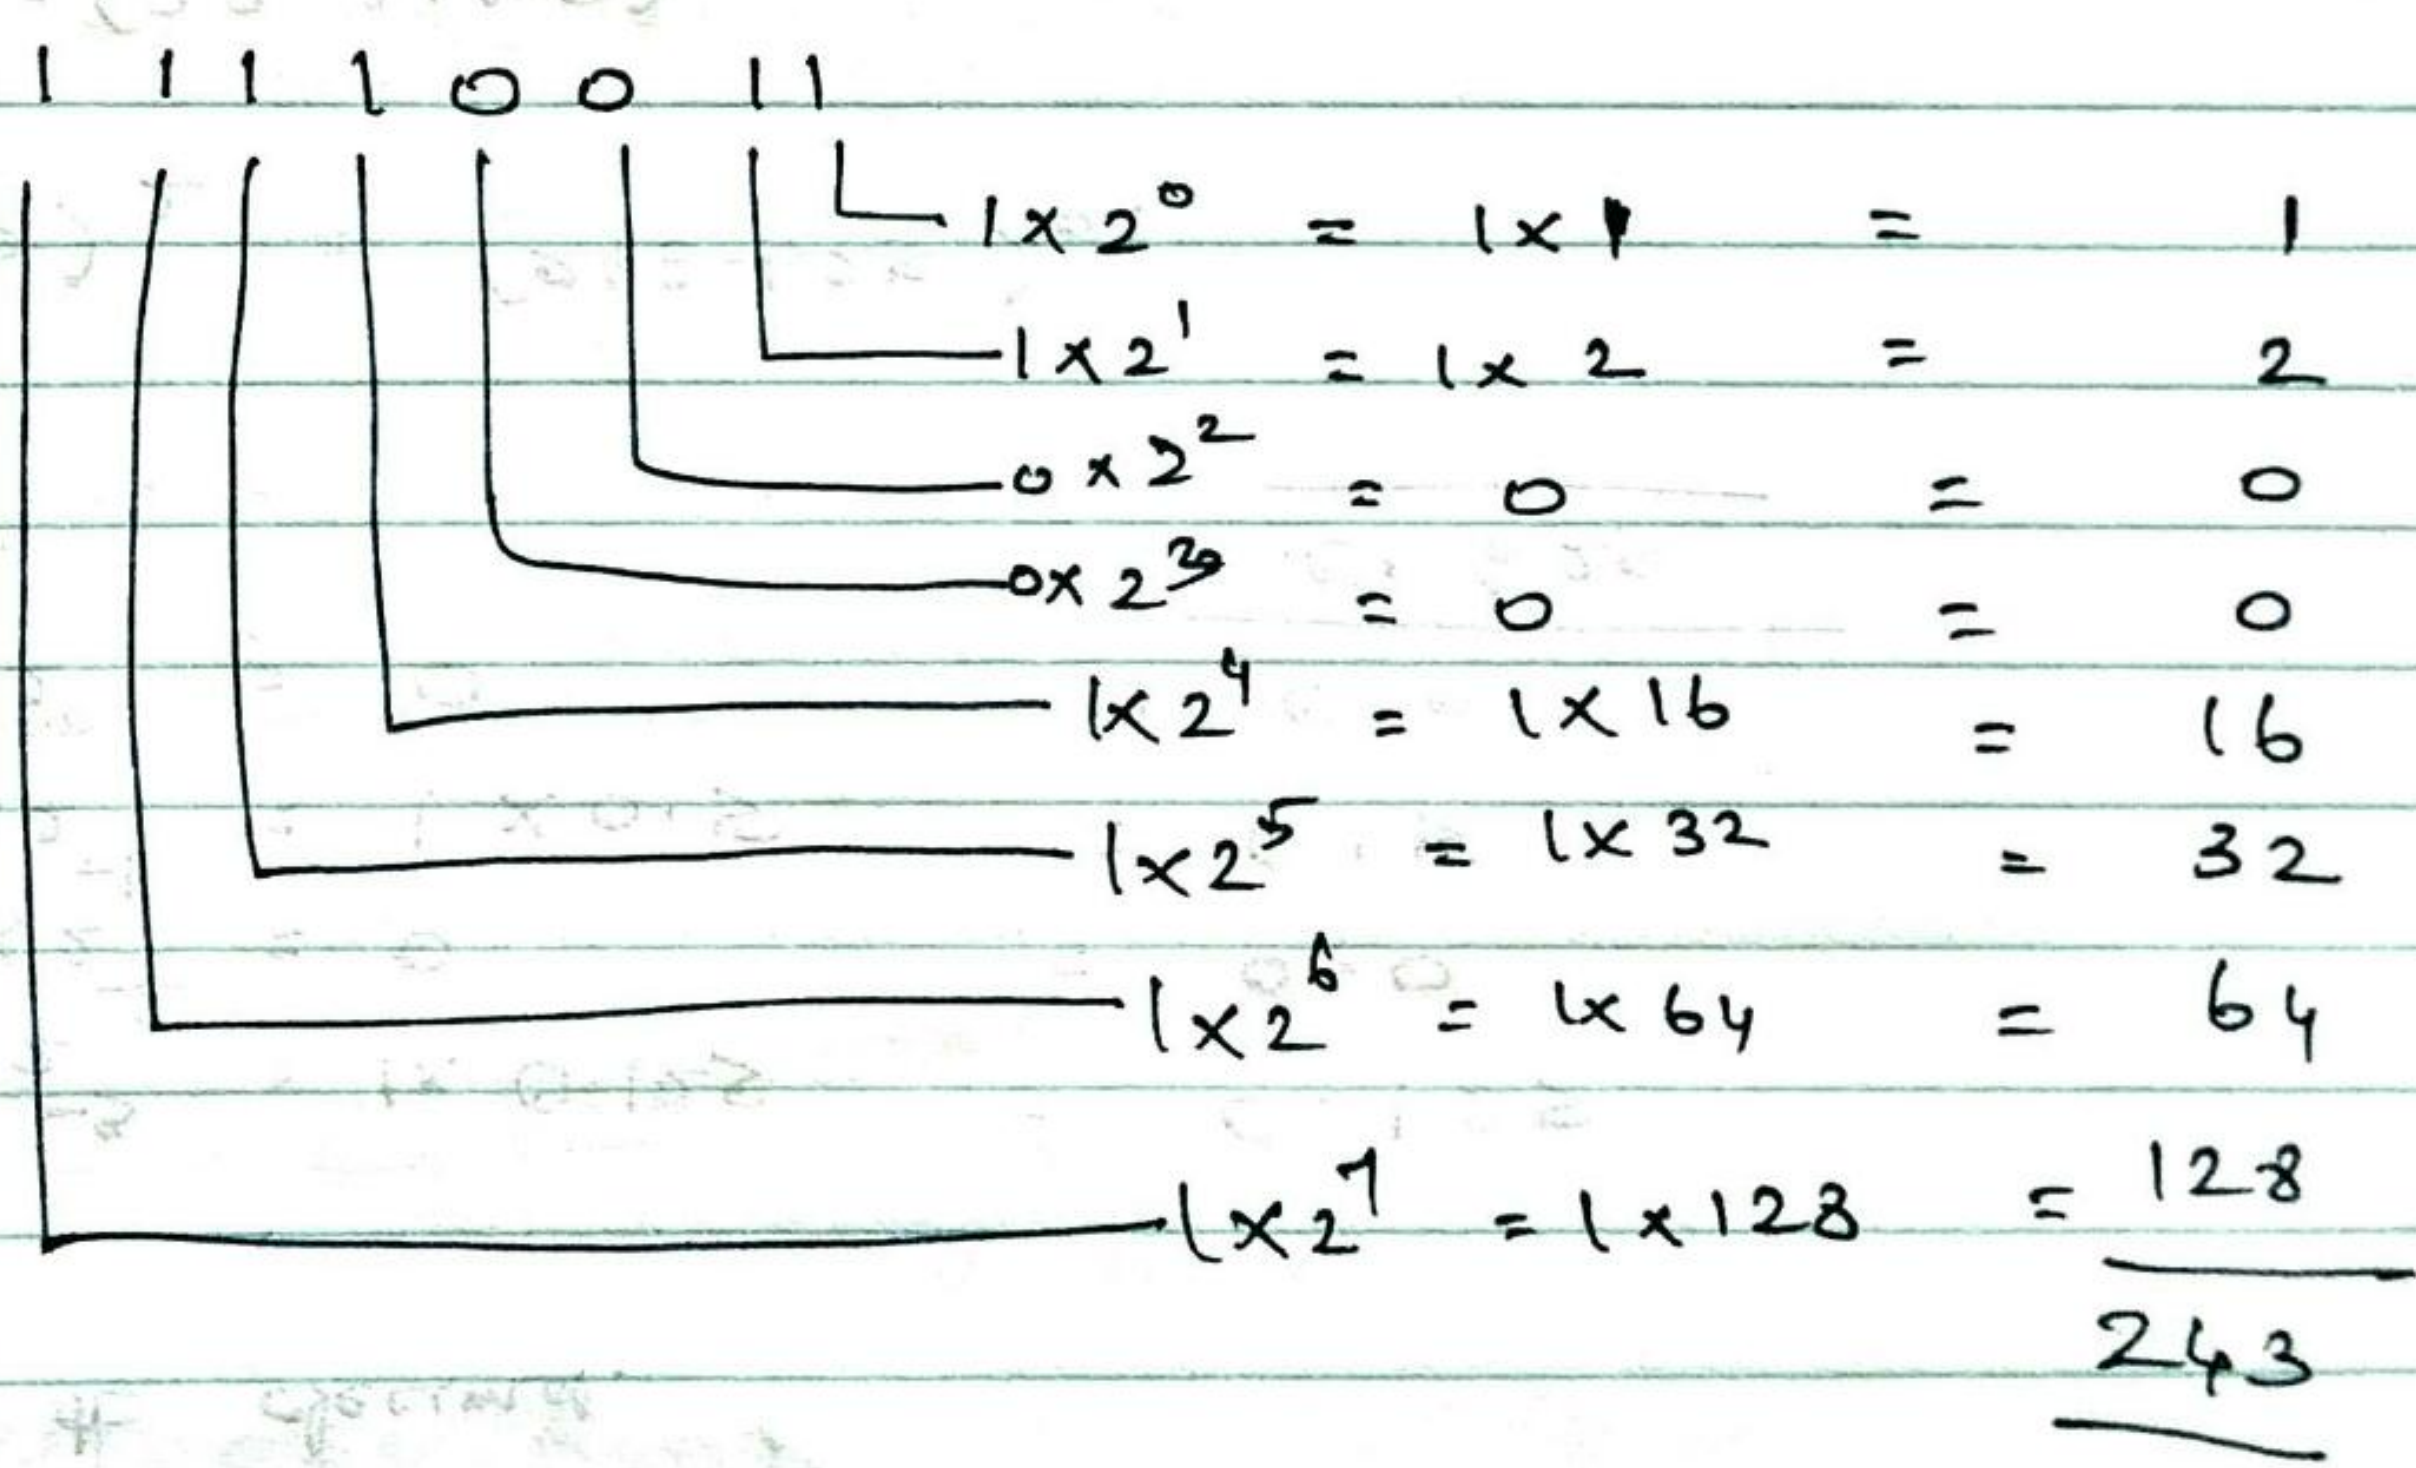 1 1 1 1 0 0 1 1
1 × 2⁰ = 1 × 1 = 1
1 × 2¹ = 1 × 2 = 2
0 × 2² = 0 = 0
0 × 2³ = 0 = 0
1 × 2⁴ = 1 × 16 = 16
1 × 2⁵ = 1 × 32 = 32
1 × 2⁶ = 1 × 64 = 64
1 × 2⁷ = 1 × 128 = 128
243